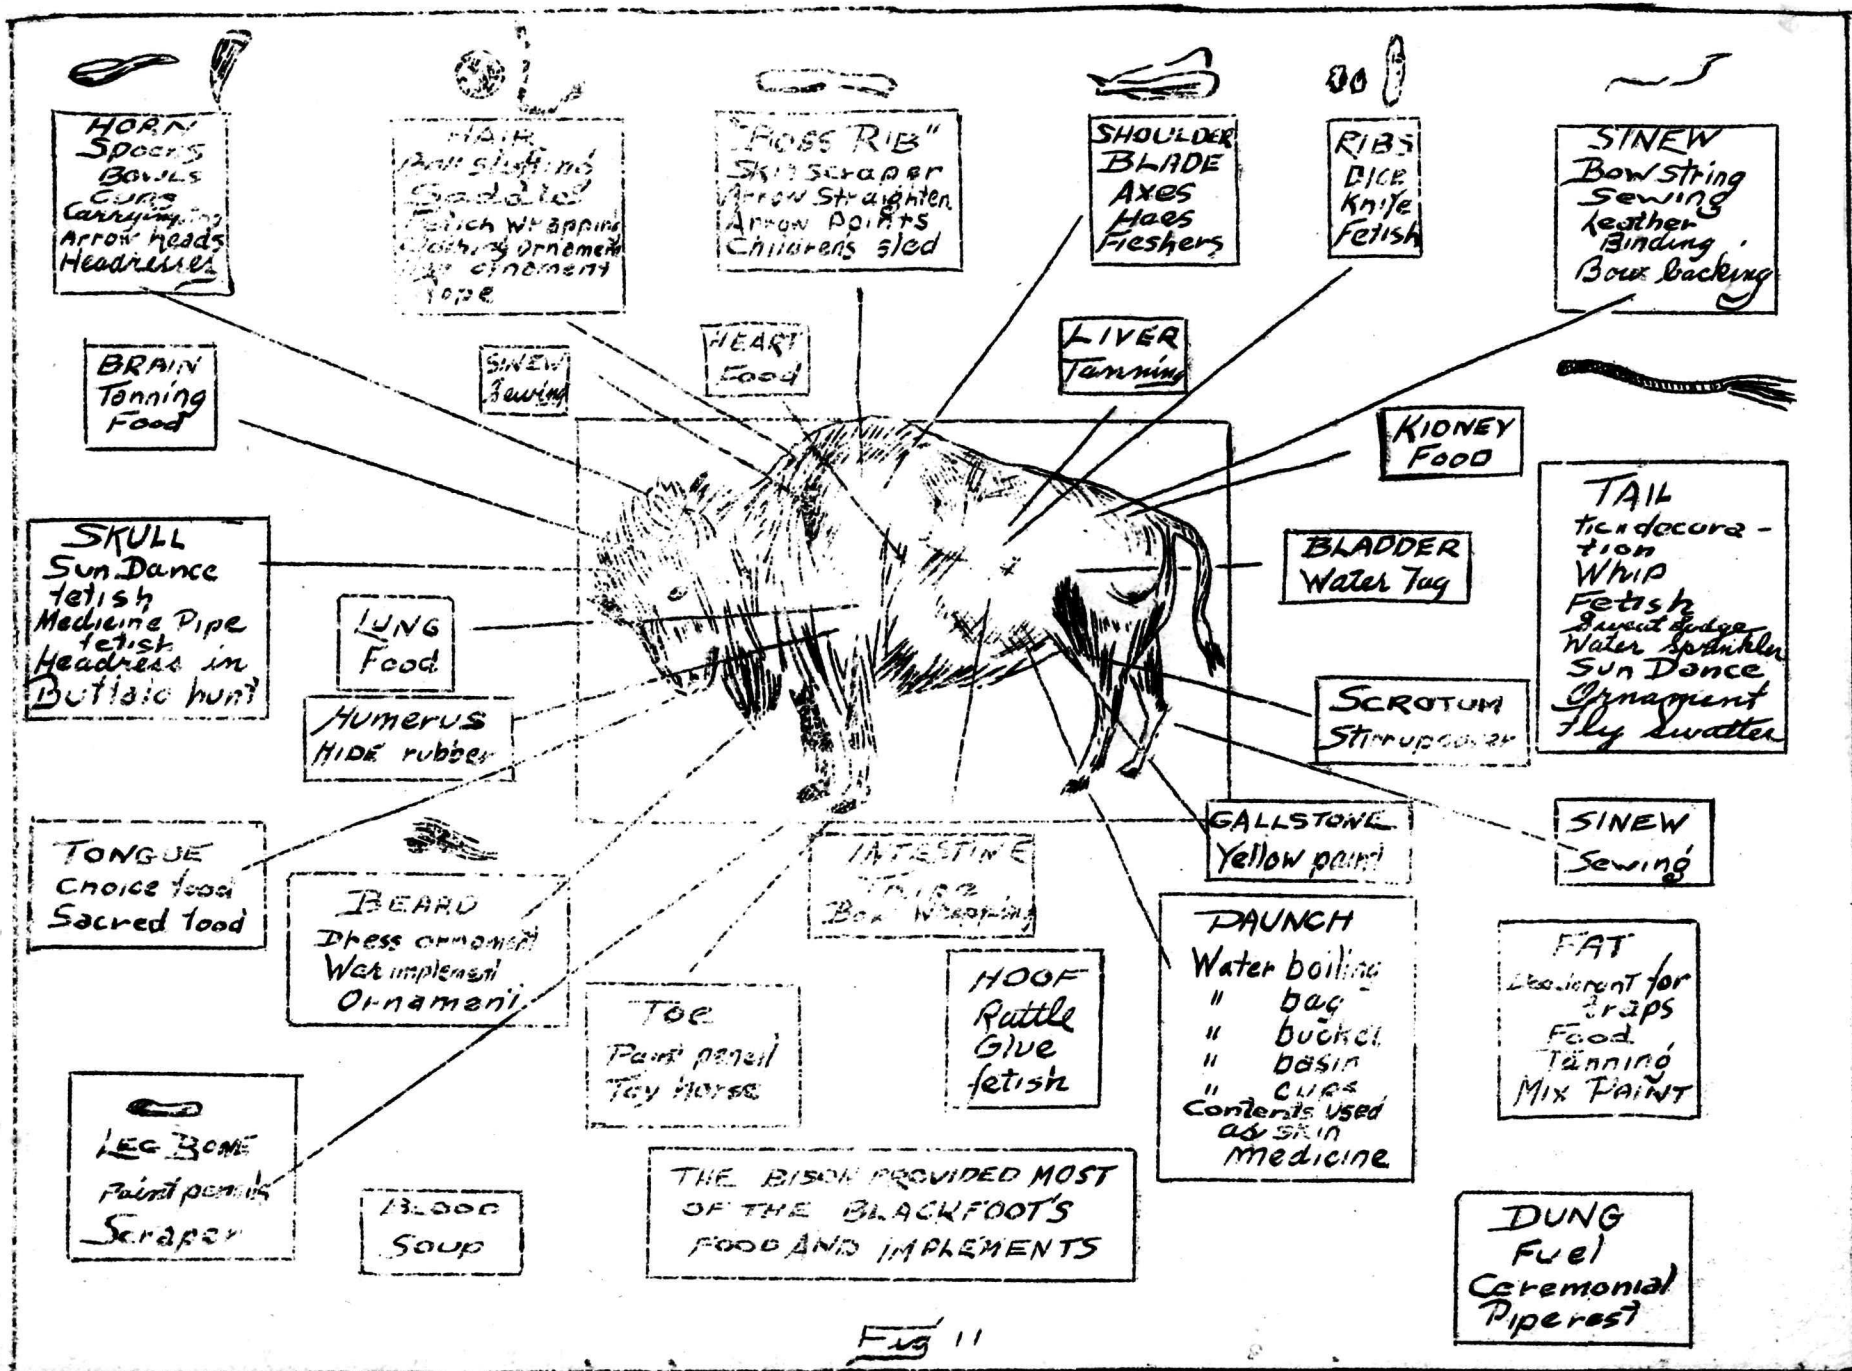 HORN
Spoons
Bowls
Cups
Carrying
Arrow heads
Headresses
HAIR
Ball stuffing
Saddles
Wrapping
Clothing Ornament
ornament
rope
"BOSS RIB"
Skin scraper
Arrow Straighten
Arrow Points
Childrens sled
SHOULDER
BLADE
Axes
Hoes
Fleshers
RIBS
DICE
Knife
Fetish
SINEW
Bow String
Sewing
Leather
Binding
Bow backing
BRAIN
Tanning
Food
SINEW
Sewing
HEART
Food
LIVER
Tanning
KIDNEY
FOOD
SKULL
Sun Dance
fetish
Medicine Pipe
fetish
Headress in
Buffalo hunt
LUNG
Food
HUMERUS
HIDE rubber
BLADDER
Water
TAIL
decora-
tion
Whip
Fetish
Sweat Lodge
Water Sprinkler
Sun Dance
Ornament
Fly Swatter
SCROTUM
Stirrup cover
TONGUE
Choice food
Sacred food
BEARD
Dress ornament
War implement
Ornament
INTESTINE
Wrapping
GALLSTONE
Yellow paint
SINEW
Sewing
TOE
Paint pencil
Toy Horse
HOOF
Rattle
Glue
fetish
PAUNCH
Water boiling
" bag
" bucket
" basin
" cups
Contents used
as skin
Medicine
FAT
Deodorant for
traps
Food
Tanning
MIX PAINT
LEG BONE
Paint pencils
Scraper
BLOOD
Soup
THE BISON PROVIDED MOST
OF THE BLACKFOOT'S
FOOD AND IMPLEMENTS
DUNG
Fuel
Ceremonial
Pipe rest
Fig 11